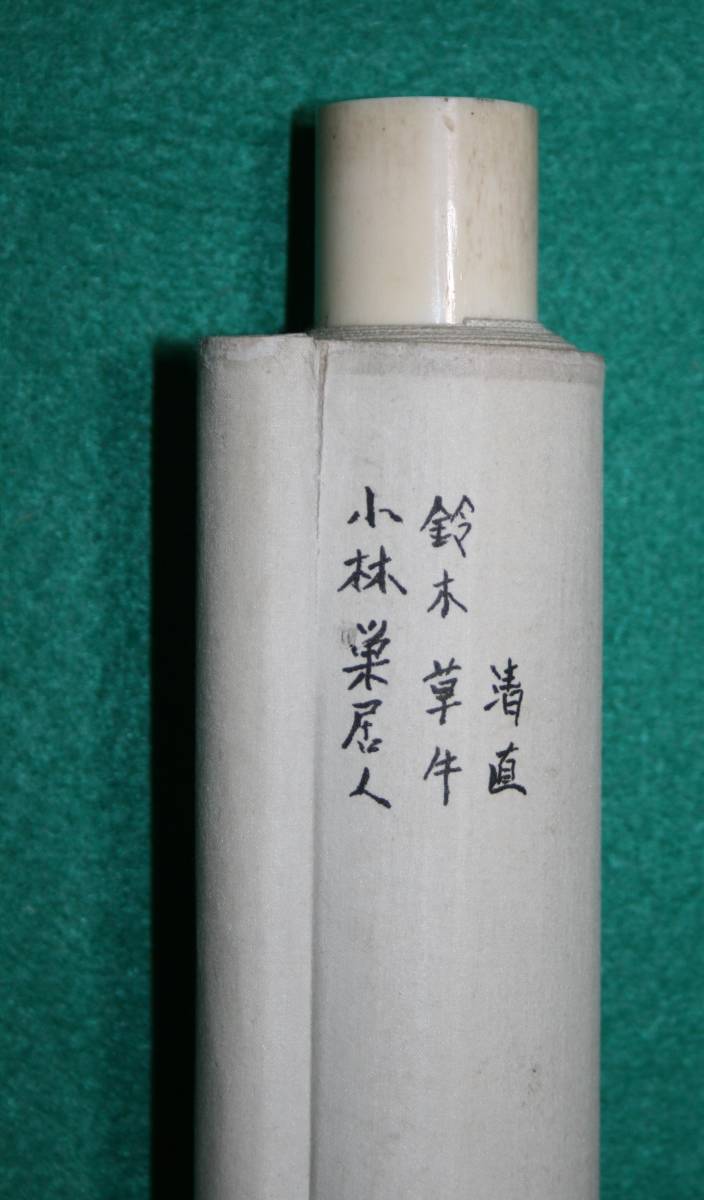 清直
鈴木草牛
小林巣居人